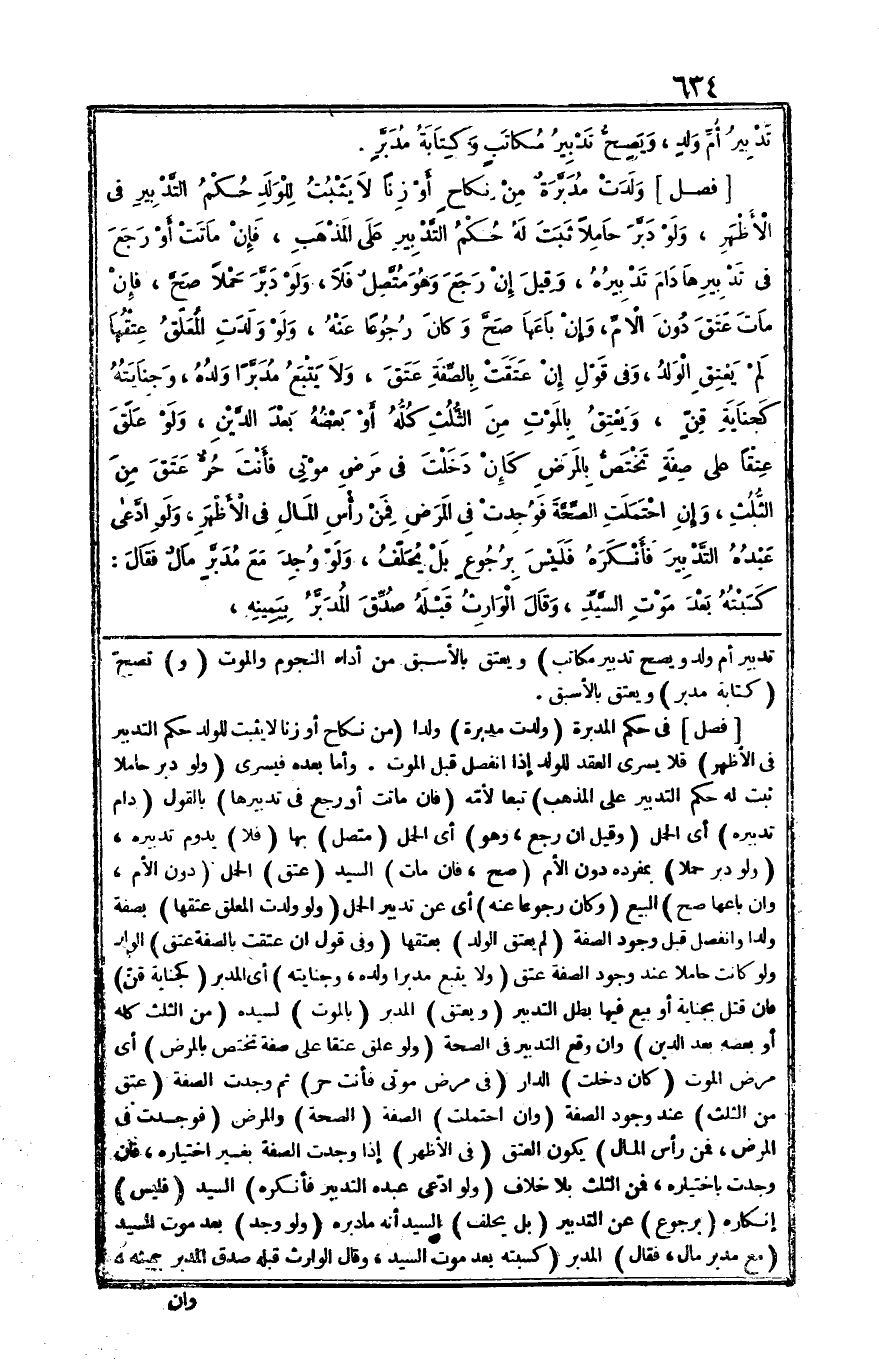 ٦٣٤
تَدْبِيرُ أُمِّ وَلَدٍ ، وَيَصِحُّ تَدْبِيرُ مُكَاتَبٍ وَكِتَابَةُ مُدَبَّرٍ .
[ فصل ] وَلَدَتْ مُدَبَّرَةٌ مِنْ نِكَاحٍ أَوْ زِنًا لَا يَثْبُتُ لِلْوَلَدِ حُكْمُ التَّدْبِيرِ فى
الْأَظْهَرِ ، وَلَوْ دَبَّرَ حَامِلاً ثَبَتَ لَهُ حُكْمُ التَّدْبِيرِ عَلَى المَذْهَبِ ، فَإِنْ مَاتَتْ أَوْ رَجَعَ
فى تَدْبِيرِهَا دَامَ تَدْبِيرُهُ ، وَقِيلَ إِنْ رَجَعَ وَهُوَ مُتَّصِلٌ فَلَا ، وَلَوْ دَبَّرَ حَمْلاً صَحَّ ، فَإِنْ
مَاتَ عَتَقَ دُونَ الْأُمِّ ، وَإِنْ بَاعَهَا صَحَّ وَكَانَ رُجُوعًا عَنْهُ ، وَلَوْ وَلَدَتِ المُعَلَّقُ عِتْقُهَا
لَمْ يَعْتِقِ الْوَلَدُ ، وَفى قَوْلٍ إِنْ عَتَقَتْ بِالصِّفَةِ عَتَقَ ، وَلَا يَتْبَعُ مُدَبَّرًا وَلَدُهُ ، وَجِنَايَتُهُ
كَجِنَايَةِ قِنٍّ ، وَيَعْتِقُ بِالمَوْتِ مِنَ الثُّلُثِ كُلُّهُ أَوْ بَعْضُهُ بَعْدَ الدَّيْنِ ، وَلَوْ عَلَّقَ
عِتْقًا على صِفَةٍ تَخْتَصُّ بِالمَرَضِ كَإِنْ دَخَلْتَ فى مَرَضِ مَوْتِى فَأَنْتَ حُرٌّ عَتَقَ مِنَ
الثُّلُثِ ، وَإِنِ احْتَمَلَتِ الصِّحَّةَ فَوُجِدَتْ فى المَرَضِ فَمِنْ رَأْسِ المَالِ فى الْأَظْهَرِ ، وَلَوِ ادَّعَى
عَبْدُهُ التَّدْبِيرَ فَأَنْكَرَهُ فَلَيْسَ بِرُجُوعٍ بَلْ يُحَلَّفُ ، وَلَوْ وُجِدَ مَعَ مُدَبَّرٍ مَالٌ فَقَالَ :
كَسَبْتُهُ بَعْدَ مَوْتِ السَّيِّدِ ، وَقَالَ الْوَارِثُ قَبْلَهُ صُدِّقَ المُدَبَّرُ بِيَمِينِهِ ،
تدبير أم ولد ويصح تدبير مكاتب ) ويعتق بالأسبق من أداء النجوم والموت ( و ) تصيح
( كتابة مدبر ) ويعتق بالأسبق .
[ فصل ] فى حكم المدبرة ( ولدت مدبرة ) ولدا ( من نكاح أو زنا لا يثبت للولد حكم التدبير
فى الأظهر ) فلا يسرى العقد للولد إذا انفصل قبل الموت . وأما بعده فيسرى ( ولو دبر حاملا
ثبت له حكم التدبير على المذهب ) تبعا لأمه ( فان ماتت أو رجع فى تدبيرها ) بالقول ( دام
تدبيره ) أى الحمل ( وقيل ان رجع ، وهو ) أى الحمل ( متصل ) بها ( فلا ) يدوم تدبيره ،
( ولو دبر حملا ) بمفرده دون الأم ( صح ، فان مات ) السيد ( عتق ) الحمل ( دون الأم ،
وان باعها صح ) البيع ( وكان رجوعا عنه ) أى عن تدبير الحمل ( ولو ولدت المعلق عتقها ) بصفة
ولدا وانفصل قبل وجود الصفة ( لم يعتق الولد ) بعتقها ( وفى قول ان عتقت بالصفة عتق ) الولد
ولو كانت حاملا عند وجود الصفة عتق ( ولا يتبع مدبرا ولده ، وجنايته ) أى المدبر ( كجناية قنّ )
فان قتل بجناية أو بيع فيها بطل التدبير ( ويعتق ) المدبر ( بالموت ) لسيده ( من الثلث كله
أو بعضه بعد الدين ) وان وقع التدبير فى الصحة ( ولو علق عتقا على صفة تختص بالمرض ) أى
مرض الموت ( كان دخلت ) الدار ( فى مرض موتى فأنت حر ) ثم وجدت الصفة ( عتق
من الثلث ) عند وجود الصفة ( وان احتملت ) الصفة ( الصحة ) والمرض ( فوجدت فى
المرض ، فمن رأس المال ) يكون العتق ( فى الأظهر ) إذا وجدت الصفة بغير اختياره ، فان
وجدت باختياره ، فمن الثلث بلا خلاف ( ولو ادّعى عبده التدبير فأنكره ) السيد ( فليس )
إنكاره ( برجوع ) عن التدبير ( بل يحلف ) السيد أنه مادبره ( ولو وجد ) بعد موت السيد
( مع مدبر مال ، فقال ) المدبر ( كسبته بعد موت السيد ، وقال الوارث قبله صدق المدبر بيمينه
وان